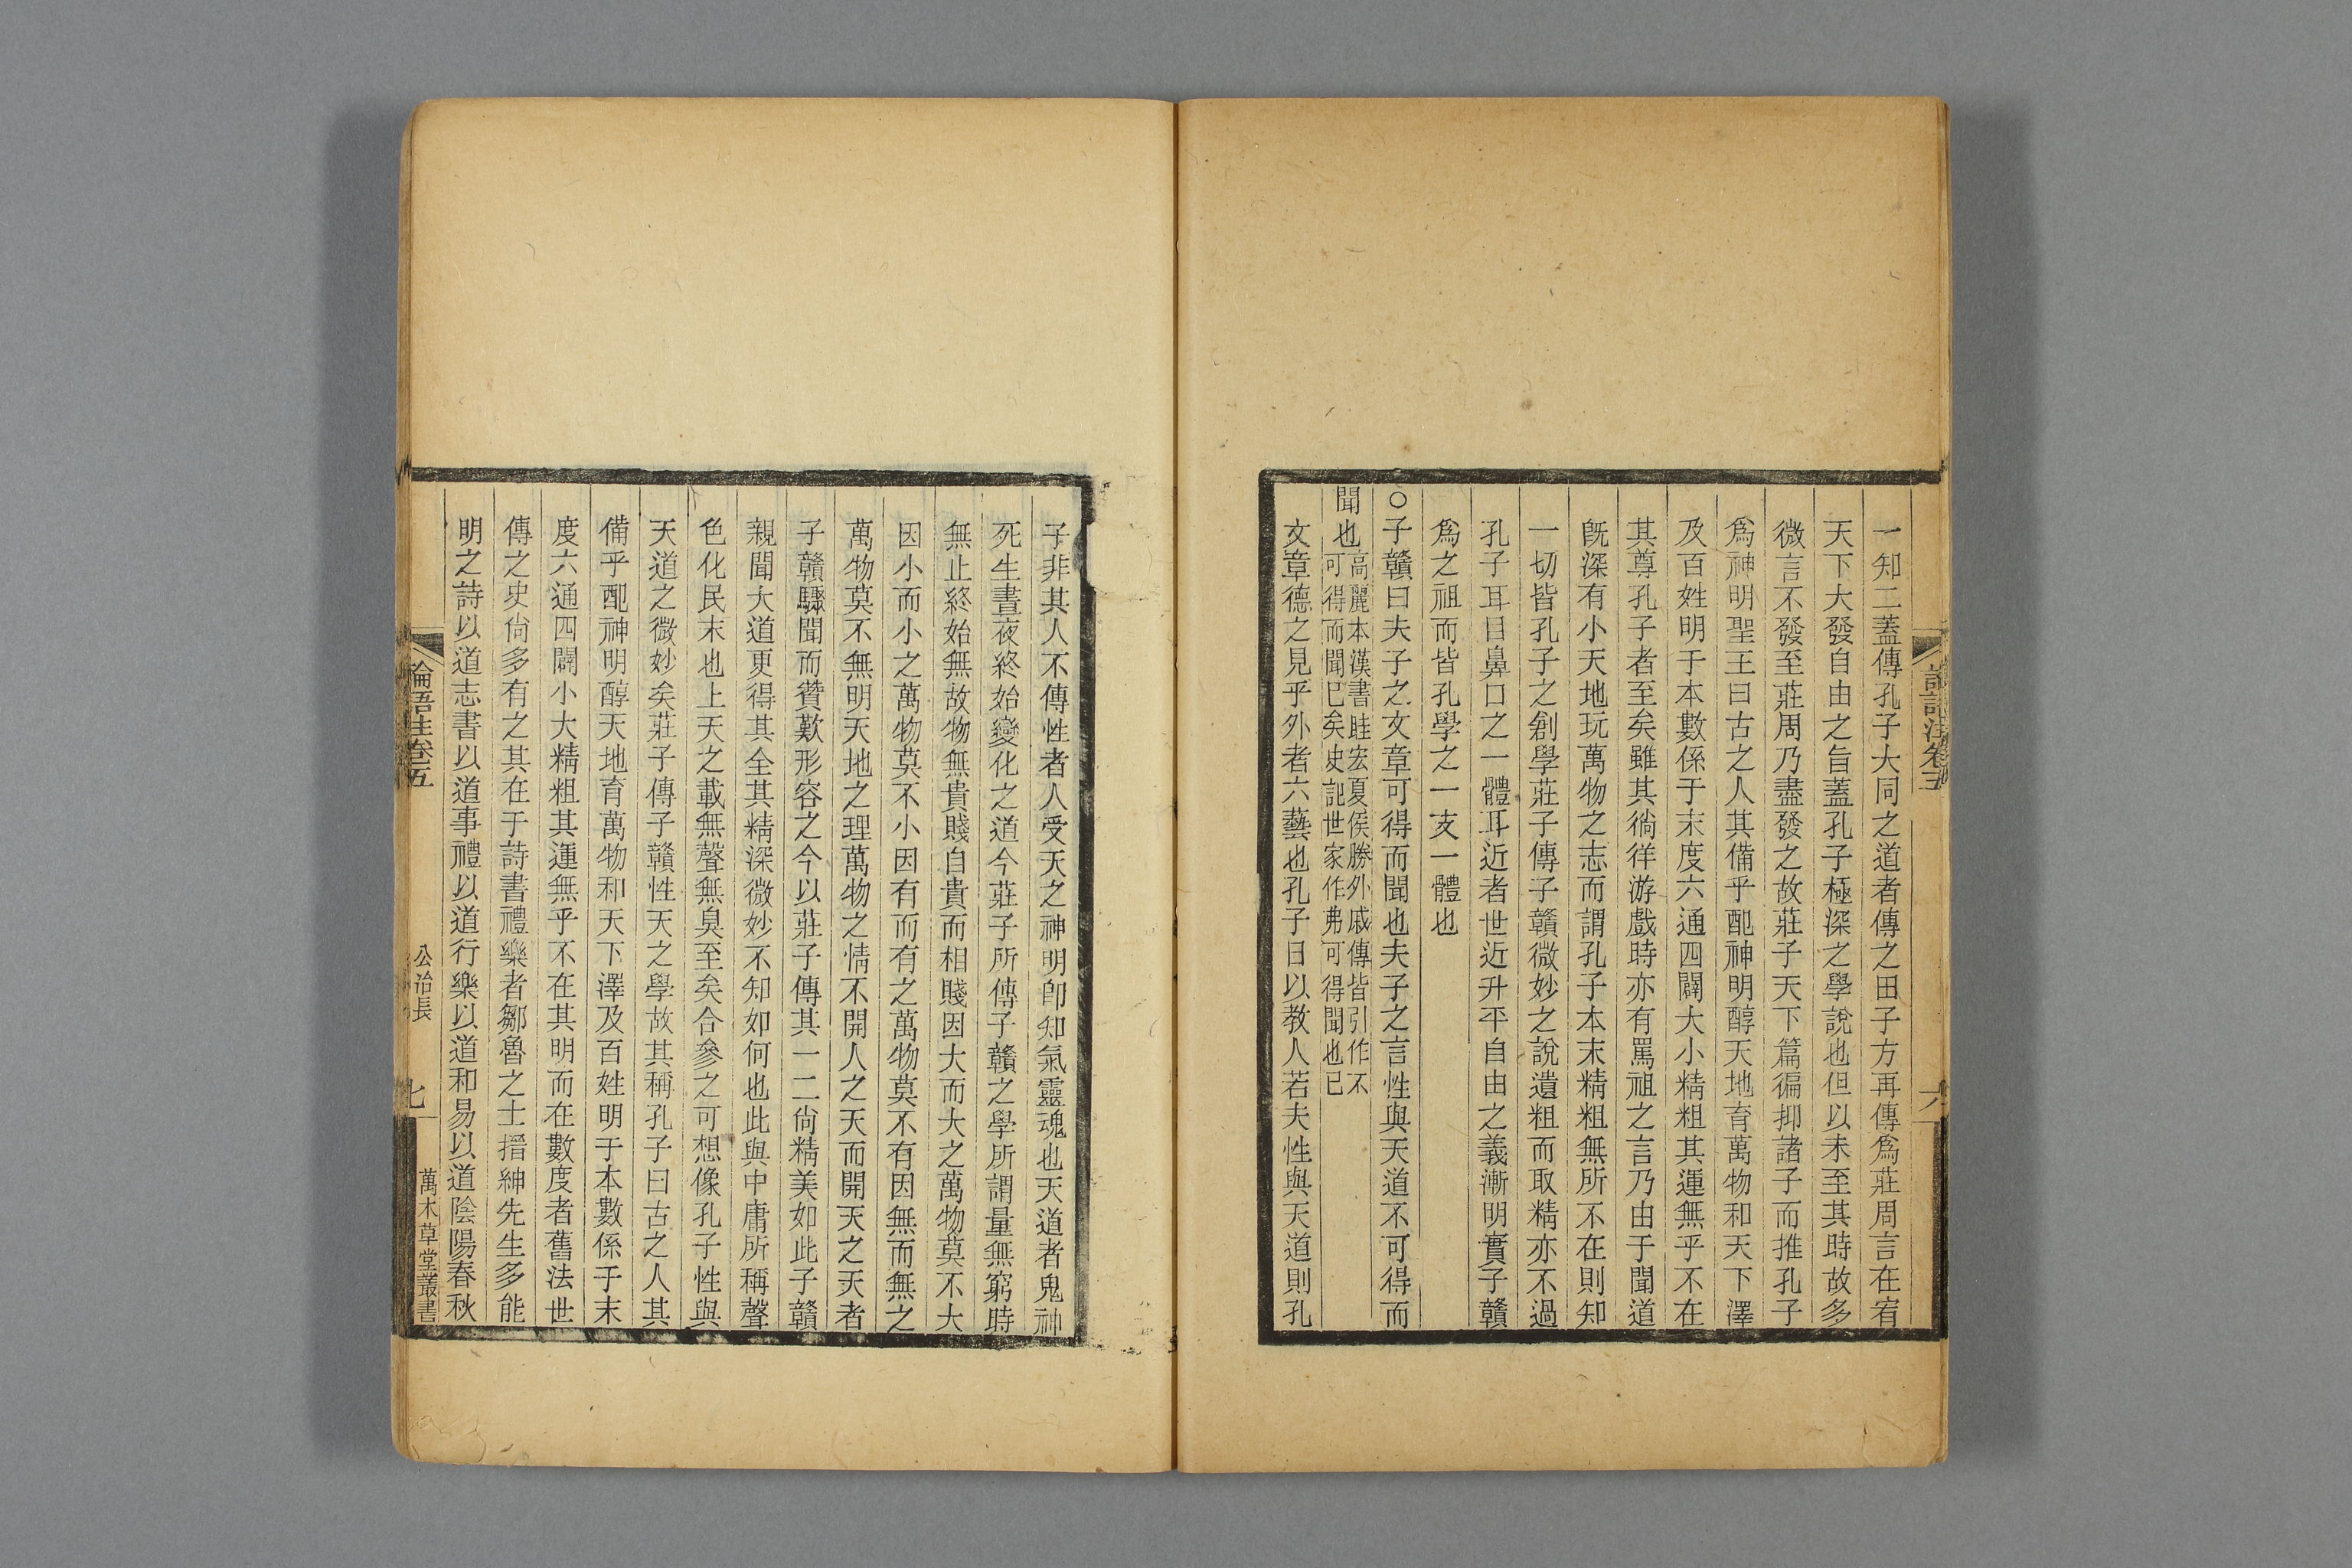 一知二蓋傳孔子大同之道者傳之田子方再傳爲莊周言在宥
天下大發自由之旨蓋孔子極深之學說也但以未至其時故多
微言不發至莊周乃盡發之故莊子天下篇徧抑諸子而推孔子
爲神明聖王曰古之人其備乎配神明醇天地育萬物和天下澤
及百姓明于本數係于末度六通四闢大小精粗其運無乎不在
其尊孔子者至矣雖其徜徉游戲時亦有罵祖之言乃由于聞道
旣深有小天地玩萬物之志而謂孔子本末精粗無所不在則知
一切皆孔子之創學莊子傳子贛微妙之說遺粗而取精亦不過
孔子耳目鼻口之一體耳近者世近升平自由之義漸明實子贛
爲之祖而皆孔學之一支一體也
○子贛曰夫子之文章可得而聞也夫子之言性與天道不可得而
聞也
高麗本漢書眭宏夏侯勝外戚傳皆引作不
可得而聞已矣史記世家作弗可得聞也已
文章德之見乎外者六藝也孔子日以敎人若夫性與天道則孔
論語注卷五
六
子非其人不傳性者人受天之神明卽知氣靈魂也天道者鬼神
死生晝夜終始變化之道今莊子所傳子贛之學所謂量無窮時
無止終始無故物無貴賤自貴而相賤因大而大之萬物莫不大
因小而小之萬物莫不小因有而有之萬物莫不有因無而無之
萬物莫不無明天地之理萬物之情不開人之天而開天之天者
子贛驟聞而贊歎形容之今以莊子傳其一二尙精美如此子贛
親聞大道更得其全其精深微妙不知如何也此與中庸所稱聲
色化民末也上天之載無聲無臭至矣合參之可想像孔子性與
天道之微妙矣莊子傳子贛性天之學故其稱孔子曰古之人其
備乎配神明醇天地育萬物和天下澤及百姓明于本數係于末
度六通四闢小大精粗其運無乎不在其明而在數度者舊法世
傳之史尙多有之其在于詩書禮樂者鄒魯之士搢紳先生多能
明之詩以道志書以道事禮以道行樂以道和易以道陰陽春秋
論語注卷五
公冶長
七
萬木草堂叢書